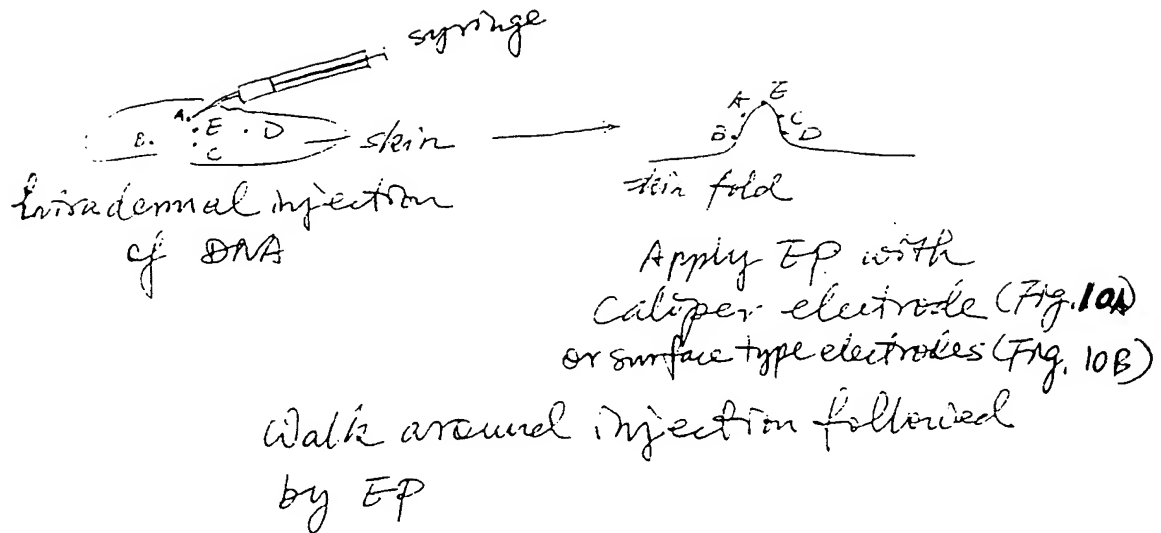 syringe
A.
B.
E
D
C
skin
Intradermal injection
of DNA
E
A
C
B
D
skin fold
Apply EP with
Caliper electrode (Fig. 10A)
or surface type electrodes (Fig. 10B)
Walk around injection followed
by EP